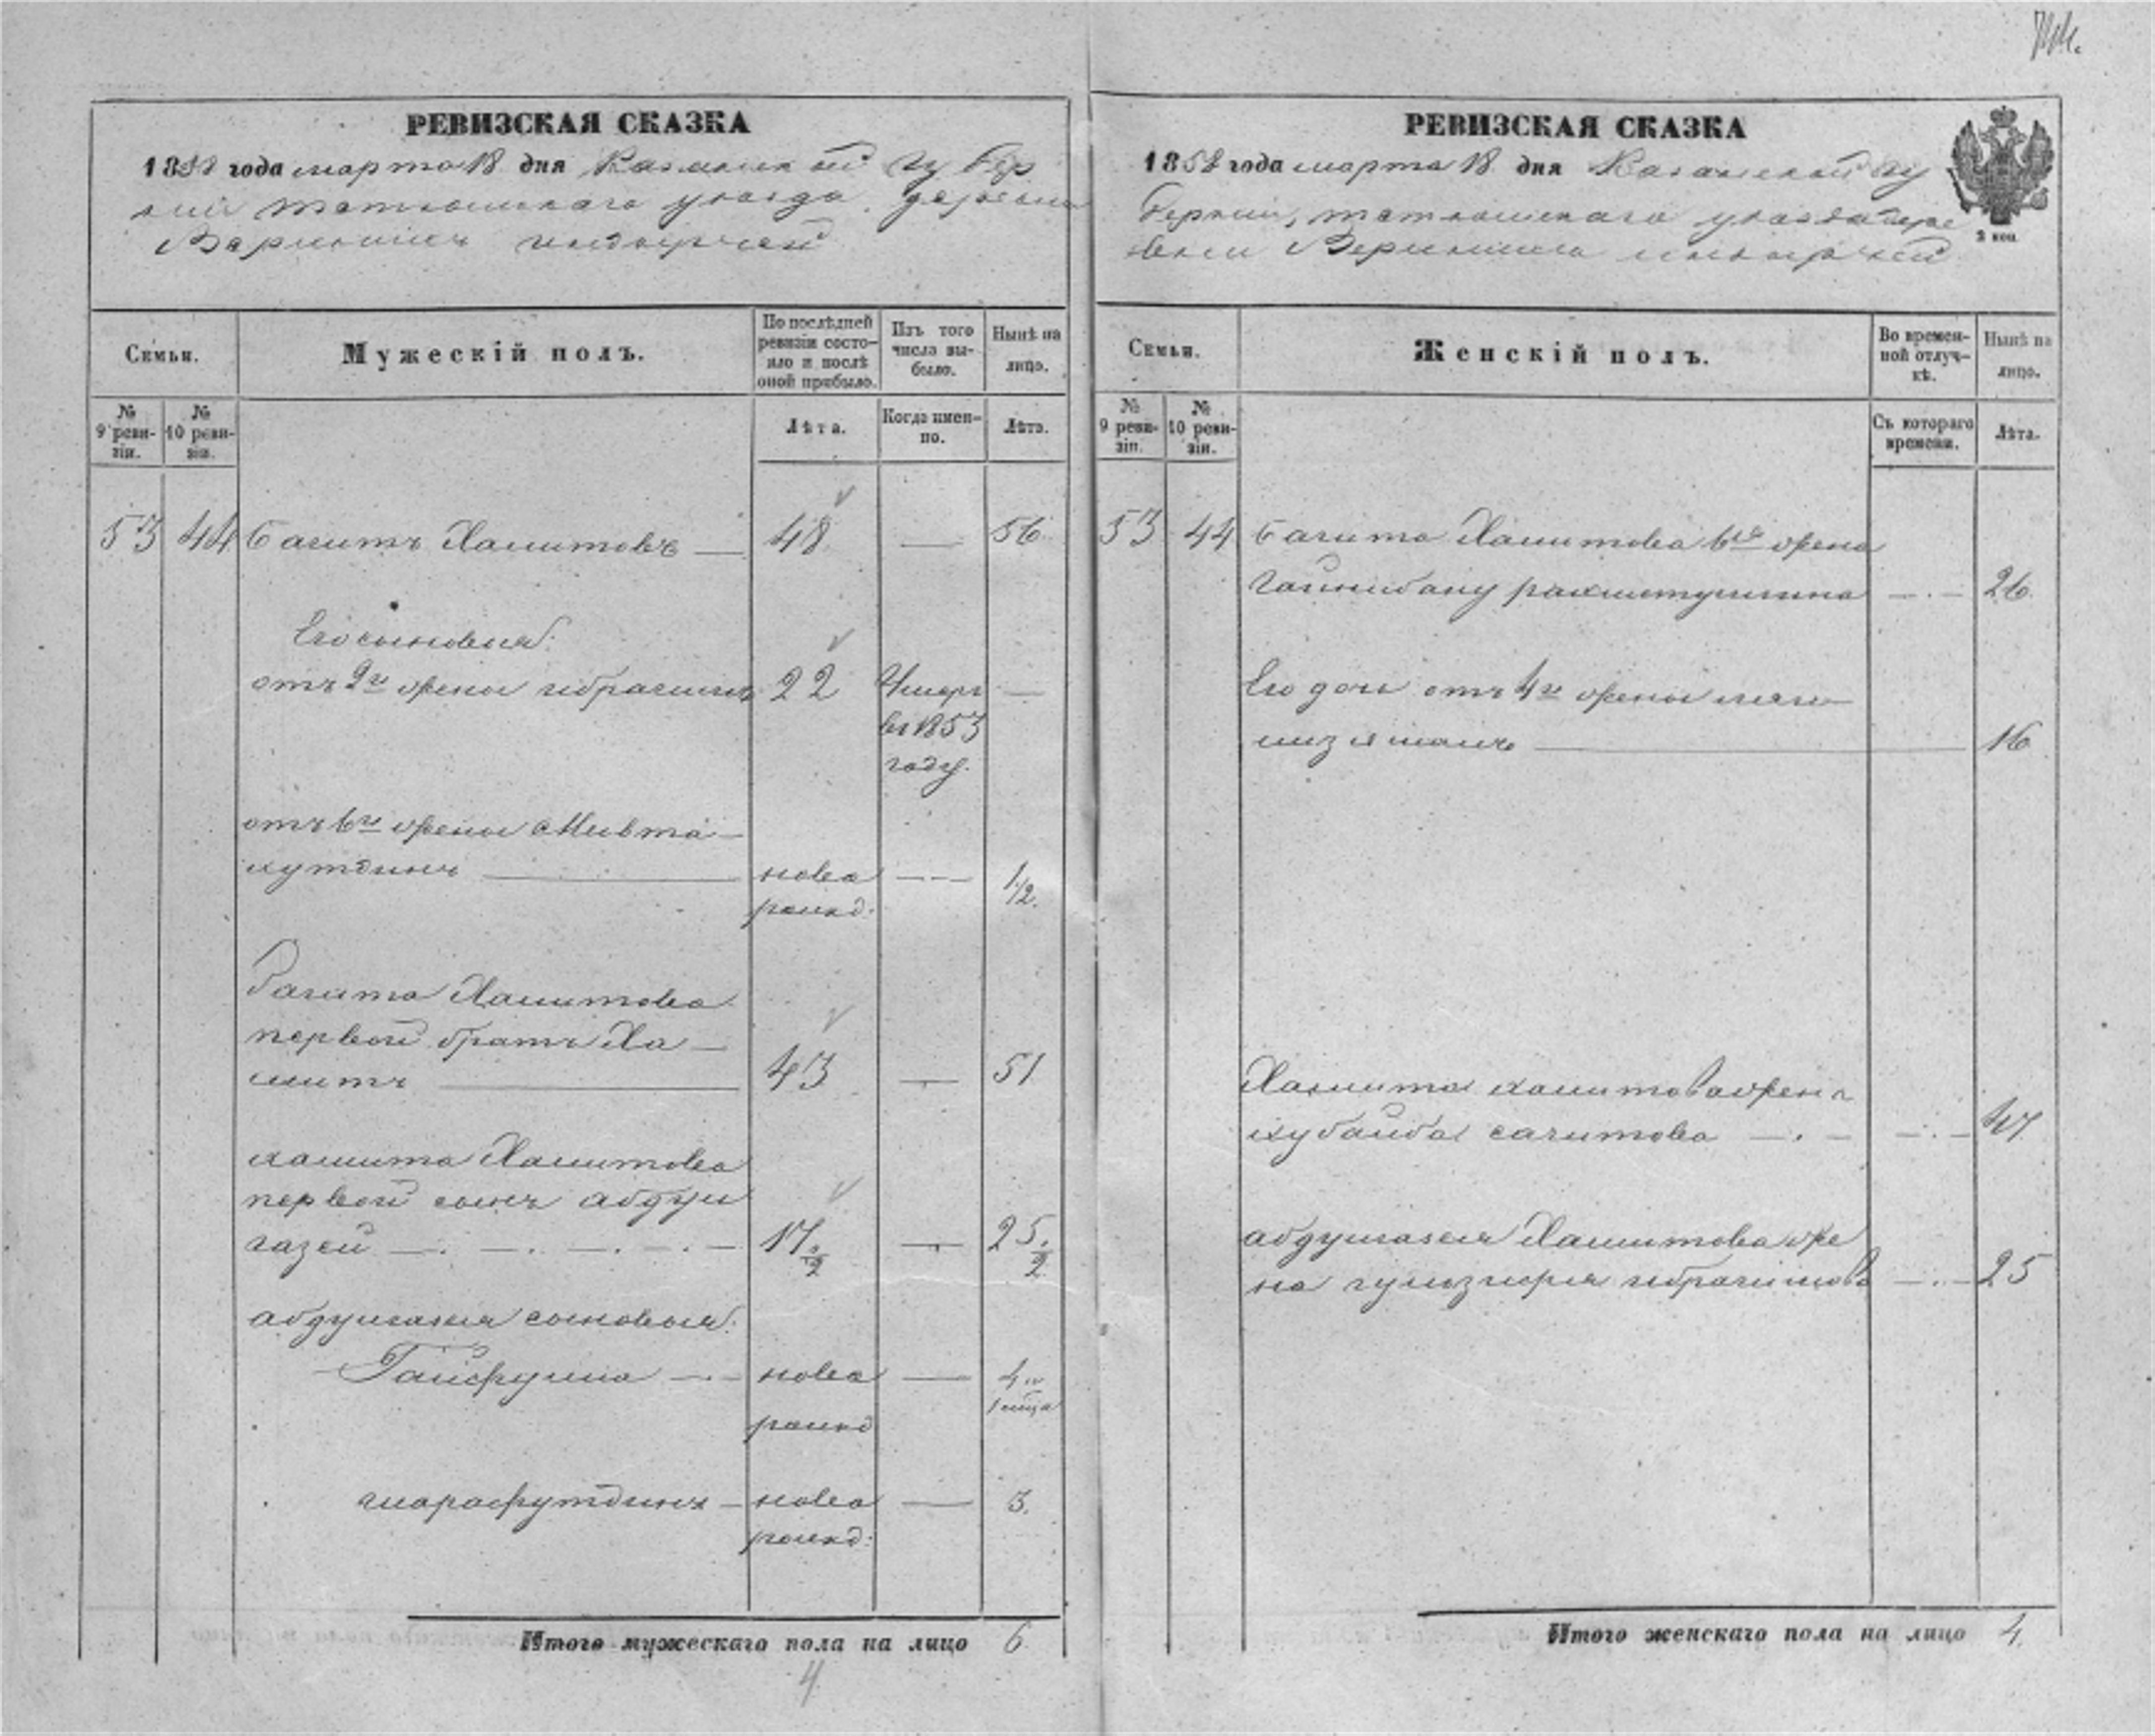 РЕВИЗСКАЯ СКАЗКА
1858 года марта 18 дня Казанской губер
нии тетюшскаго уезда деревни
РЕВИЗСКАЯ СКАЗКА
1858 года марта 18 дня Казанской гу
берніи, тетюшскаго уезда дере
вни
2 коп.
Семьи.
Мужескій полъ.
По послѣдней ревизіи состояло и послѣ оной прибыло.
Изъ того числа выбыло.
Нынѣ на лицо.
№ 9 ревизіи.
№ 10 ревизіи.
Лѣта.
Когда именно.
Лѣта.
53 44 Сагитъ Хамитовъ — 48 — 56
Его сыновья:
отъ 2й жены ибрагимъ 22 Умеръ —
въ 1853
году.
отъ 6й жены Мивта-
хутдинъ — ново — 1/2.
рожд:
Сагита Хамитова
первой братъ Ха-
митъ — 43 — 51
хамита Хамитова
первой сынъ абдул
газей — 17 1/2 — 25 1/2
абдулгазея сыновья:
Гайфулла — ново — 4 и
рожд 1 мца
шарафутдинъ — ново — 3.
рожд:
Итого мужескаго пола на лицо 6
4
Семьи.
Женскій полъ.
Во временной отлучкѣ.
Нынѣ на лицо.
№ 9 ревизіи.
№ 10 ревизіи.
Съ котораго времени.
Лѣта.
53 44 Сагита Хамитова 6я жена
рахметуллина — 26.
Его дочь отъ 4й жены
— 16
Хамита хамитова жена
хубайба сагитова — 47
абдулгазея Хамитова же
на ибрагимова — 25
Итого женскаго пола на лицо 4.